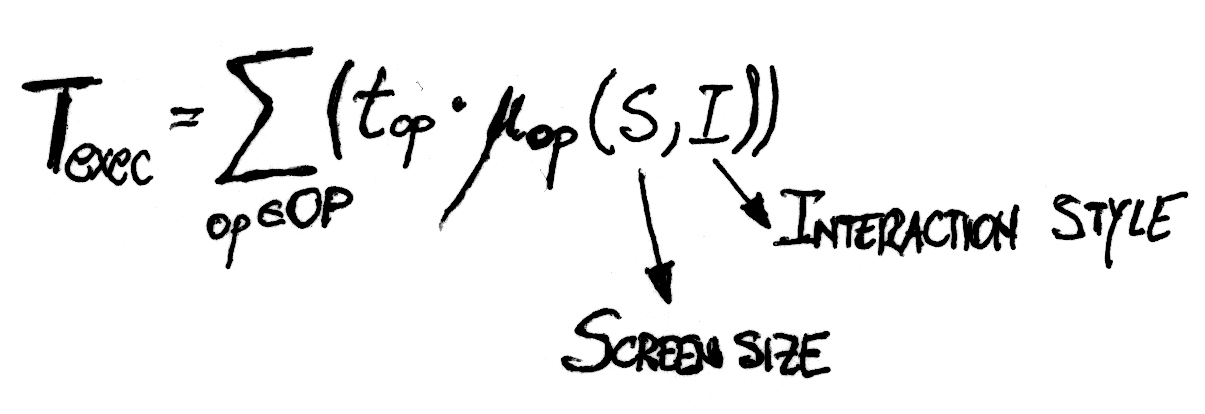 T_exec = ∑ (t_op · μ_op (S, I))
op ∈ OP
INTERACTION STYLE
SCREEN SIZE